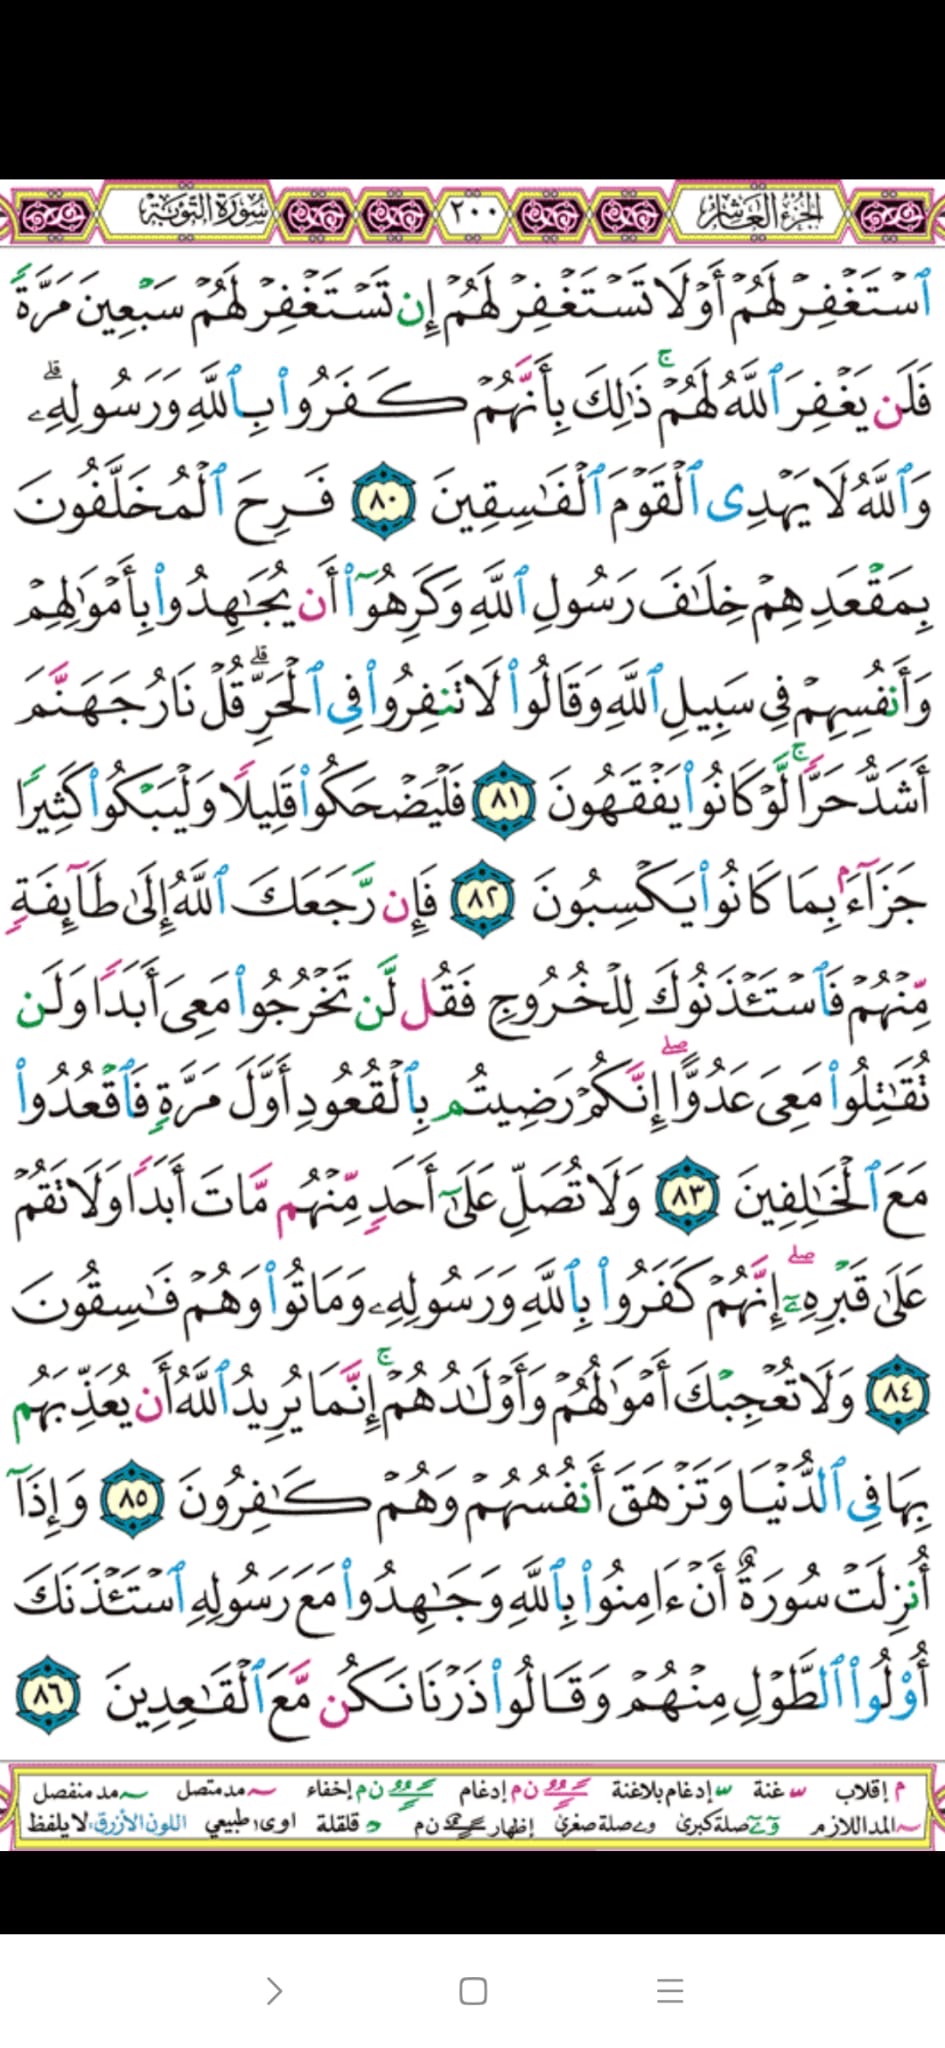 الجزء العاشر ٢٠٠ سورة التوبة
ٱسۡتَغۡفِرۡ لَهُمۡ أَوۡ لَا تَسۡتَغۡفِرۡ لَهُمۡ إِن تَسۡتَغۡفِرۡ لَهُمۡ سَبۡعِينَ مَرَّةٗ
فَلَن يَغۡفِرَ ٱللَّهُ لَهُمۡۚ ذَٰلِكَ بِأَنَّهُمۡ كَفَرُواْ بِٱللَّهِ وَرَسُولِهِۦۗ
وَٱللَّهُ لَا يَهۡدِى ٱلۡقَوۡمَ ٱلۡفَٰسِقِينَ ٨٠ فَرِحَ ٱلۡمُخَلَّفُونَ
بِمَقۡعَدِهِمۡ خِلَٰفَ رَسُولِ ٱللَّهِ وَكَرِهُوٓاْ أَن يُجَٰهِدُواْ بِأَمۡوَٰلِهِمۡ
وَأَنفُسِهِمۡ فِى سَبِيلِ ٱللَّهِ وَقَالُواْ لَا تَنفِرُواْ فِى ٱلۡحَرِّۗ قُلۡ نَارُ جَهَنَّمَ
أَشَدُّ حَرّٗاۚ لَّوۡ كَانُواْ يَفۡقَهُونَ ٨١ فَلۡيَضۡحَكُواْ قَلِيلٗا وَلۡيَبۡكُواْ كَثِيرٗا
جَزَآءَۢ بِمَا كَانُواْ يَكۡسِبُونَ ٨٢ فَإِن رَّجَعَكَ ٱللَّهُ إِلَىٰ طَآئِفَةٖ
مِّنۡهُمۡ فَٱسۡتَـٔۡذَنُوكَ لِلۡخُرُوجِ فَقُل لَّن تَخۡرُجُواْ مَعِىَ أَبَدٗا وَلَن
تُقَٰتِلُواْ مَعِىَ عَدُوًّاۖ إِنَّكُمۡ رَضِيتُم بِٱلۡقُعُودِ أَوَّلَ مَرَّةٖ فَٱقۡعُدُواْ
مَعَ ٱلۡخَٰلِفِينَ ٨٣ وَلَا تُصَلِّ عَلَىٰٓ أَحَدٖ مِّنۡهُم مَّاتَ أَبَدٗا وَلَا تَقُمۡ
عَلَىٰ قَبۡرِهِۦٓۖ إِنَّهُمۡ كَفَرُواْ بِٱللَّهِ وَرَسُولِهِۦ وَمَاتُواْ وَهُمۡ فَٰسِقُونَ
٨٤ وَلَا تُعۡجِبۡكَ أَمۡوَٰلُهُمۡ وَأَوۡلَٰدُهُمۡۚ إِنَّمَا يُرِيدُ ٱللَّهُ أَن يُعَذِّبَهُم
بِهَا فِى ٱلدُّنۡيَا وَتَزۡهَقَ أَنفُسُهُمۡ وَهُمۡ كَٰفِرُونَ ٨٥ وَإِذَآ
أُنزِلَتۡ سُورَةٌ أَنۡ ءَامِنُواْ بِٱللَّهِ وَجَٰهِدُواْ مَعَ رَسُولِهِ ٱسۡتَـٔۡذَنَكَ
أُوْلُواْ ٱلطَّوۡلِ مِنۡهُمۡ وَقَالُواْ ذَرۡنَا نَكُن مَّعَ ٱلۡقَٰعِدِينَ ٨٦
م إقلاب غنة إدغام بلاغنة ن م إدغام ن م إخفاء مد متصل مد منفصل
المد اللازم صلة كبرى صلة صغرى إظهار ن م قلقلة اوى طبيعي اللون الأزرق: لا يلفظ